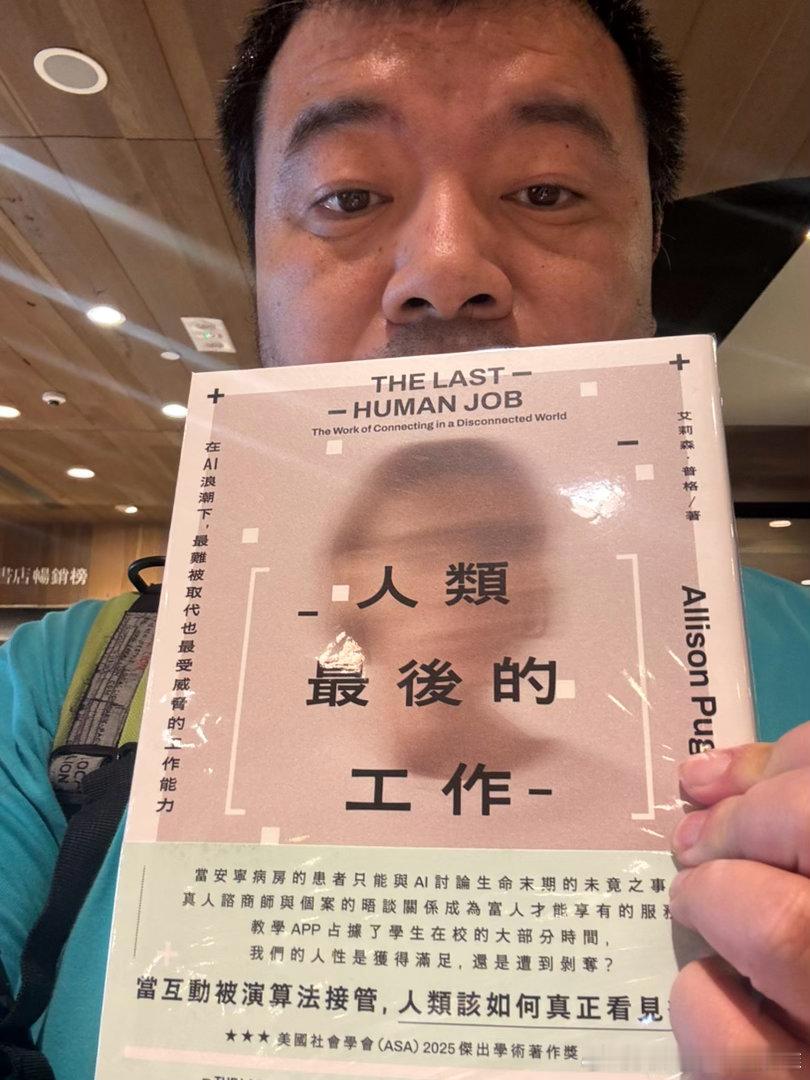 THE LAST
HUMAN JOB
The Work of Connecting in a Disconnected World
在AI浪潮下，最難被取代也最受威脅的工作能力
艾莉森·普格／著
Allison Pug
人類
最後的
工作
書店暢銷榜
當安寧病房的患者只能與AI討論生命末期的未竟之事
真人諮商師與個案的晤談關係成為富人才能享有的服務
教學APP占據了學生在校的大部分時間，
我們的人性是獲得滿足，還是遭到剝奪？
當互動被演算法接管，人類該如何真正看見
★★★美國社會學會（ASA）2025傑出學術著作獎